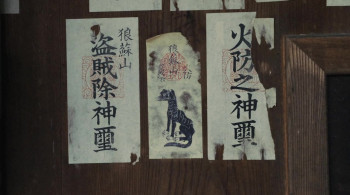 火防之神璽
狼
山
狼蘇山
盗賊除神璽